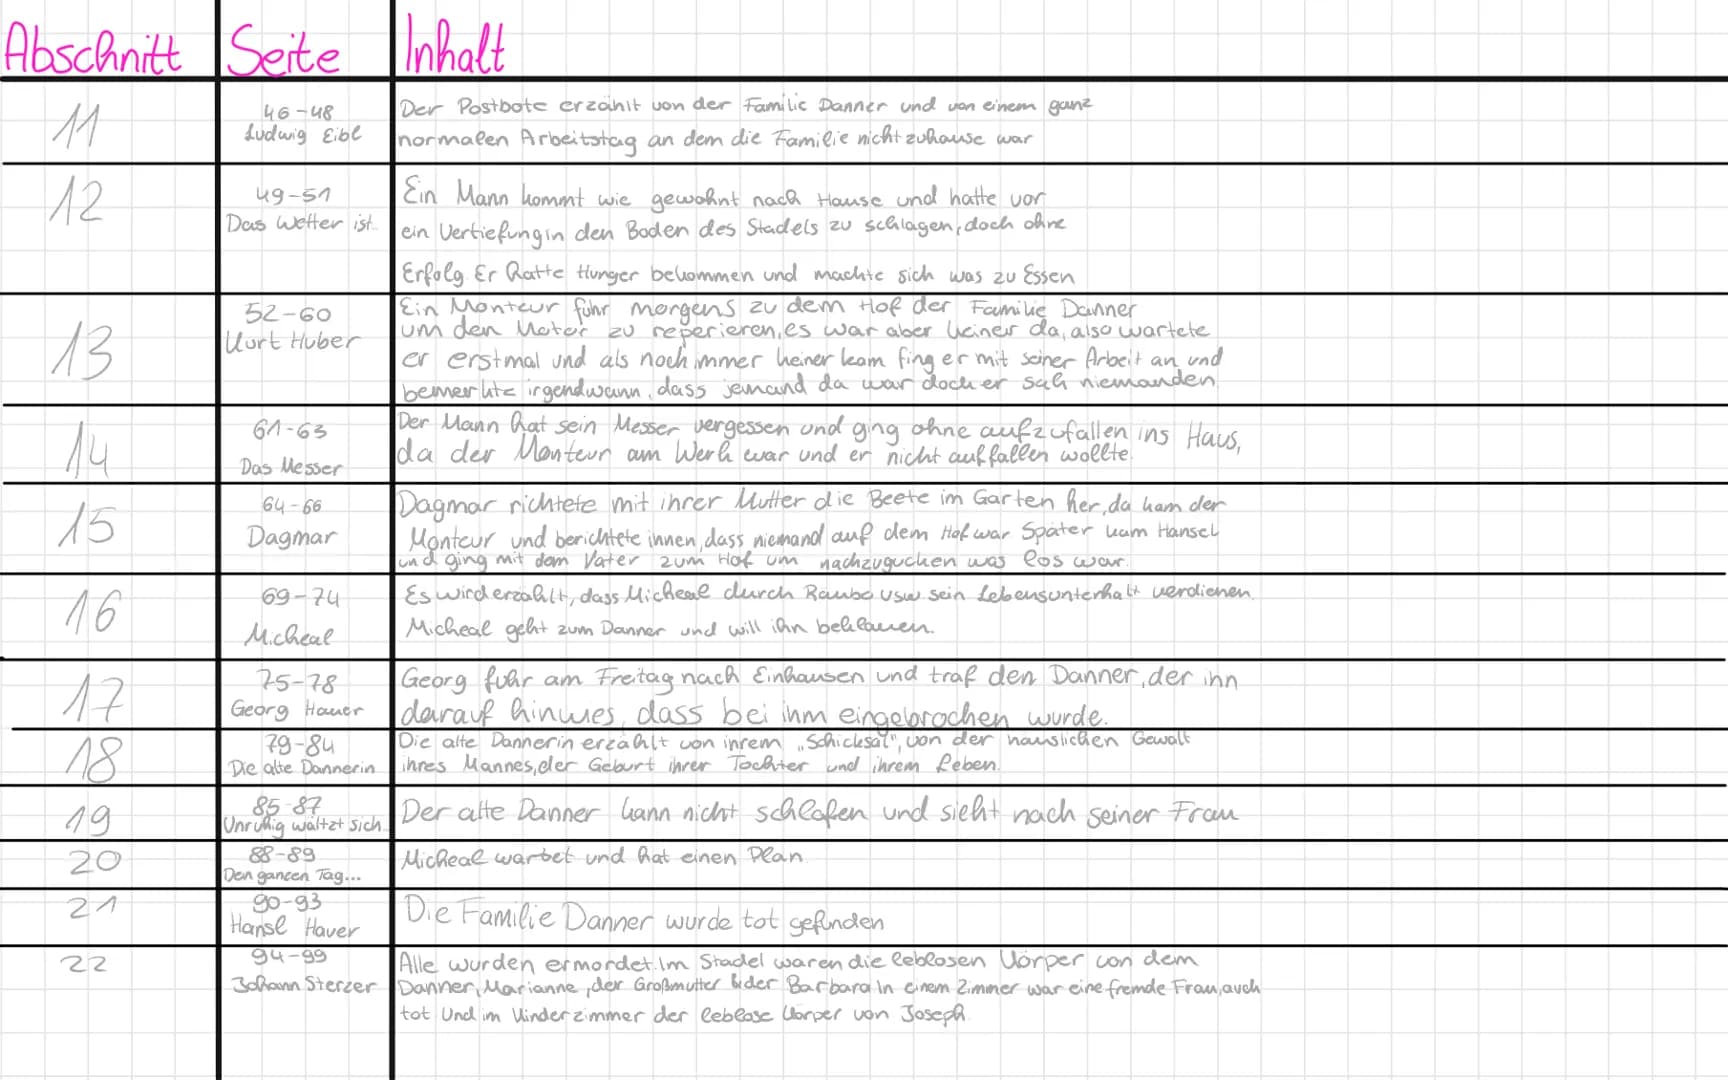 Abschnitt Seite Inhalt
11
46-48
Ludwig Eibl
Der Postbote erzählt von der Familie Danner und von einem ganz
normalen Arbeitstag an dem die Familie nicht zuhause war
12
49-51
Das Wetter ist..
Ein Mann kommt wie gewohnt nach Hause und hatte vor
ein Vertiefung in den Boden des Stadels zu schlagen, doch ohne
Erfolg. Er hatte Hunger bekommen und machte sich was zu Essen
13
52-60
Kurt Huber
Ein Monteur fuhr morgens zu dem Hof der Familie Danner
um den Motor zu reperieren, es war aber keiner da, also wartete
er erstmal und als noch immer keiner kam fing er mit seiner Arbeit an und
bemerkte irgendwann, dass jemand da war doch er sah niemanden.
14
61-63
Das Messer
Der Mann hat sein Messer vergessen und ging ohne aufzufallen ins Haus,
da der Monteur am Werk war und er nicht auffallen wollte.
15
64-66
Dagmar
Dagmar richtete mit ihrer Mutter die Beete im Garten her, da kam der
Monteur und berichtete innen, dass niemand auf dem Hof war Später kam Hansel
und ging mit dem Vater zum Hof um nachzugucken was los war.
16
69-74
Micheal
Es wird erzählt, dass Micheal durch Raube usw sein Lebensunterhalt verdienen.
Micheal geht zum Danner und will ihn beklauen.
17
75-78
Georg Hauer
Georg fuhr am Freitag nach Einhausen und traf den Danner, der ihn
darauf hinwies, dass bei ihm eingebrochen wurde.
18
79-84
Die alte Dannerin
Die alte Dannerin erzählt von ihrem „Schicksal", von der häuslichen Gewalt
ihres Mannes, der Geburt ihrer Tochter und ihrem Leben.
19
85-87
Unruhig wältzt sich..
Der alte Danner kann nicht schlafen und sieht nach seiner Frau
20
88-89
Den ganzen Tag...
Micheal wartet und hat einen Plan.
21
90-93
Hansl Hauer
Die Familie Danner wurde tot gefunden
22
94-99
Johann Sterzer
Alle wurden ermordet. Im Stadel waren die leblosen Körper von dem
Danner, Marianne, der Großmutter & der Barbara In einem Zimmer war eine fremde Frau, auch
tot Und im Kinderzimmer der leblose Körper von Joseph.